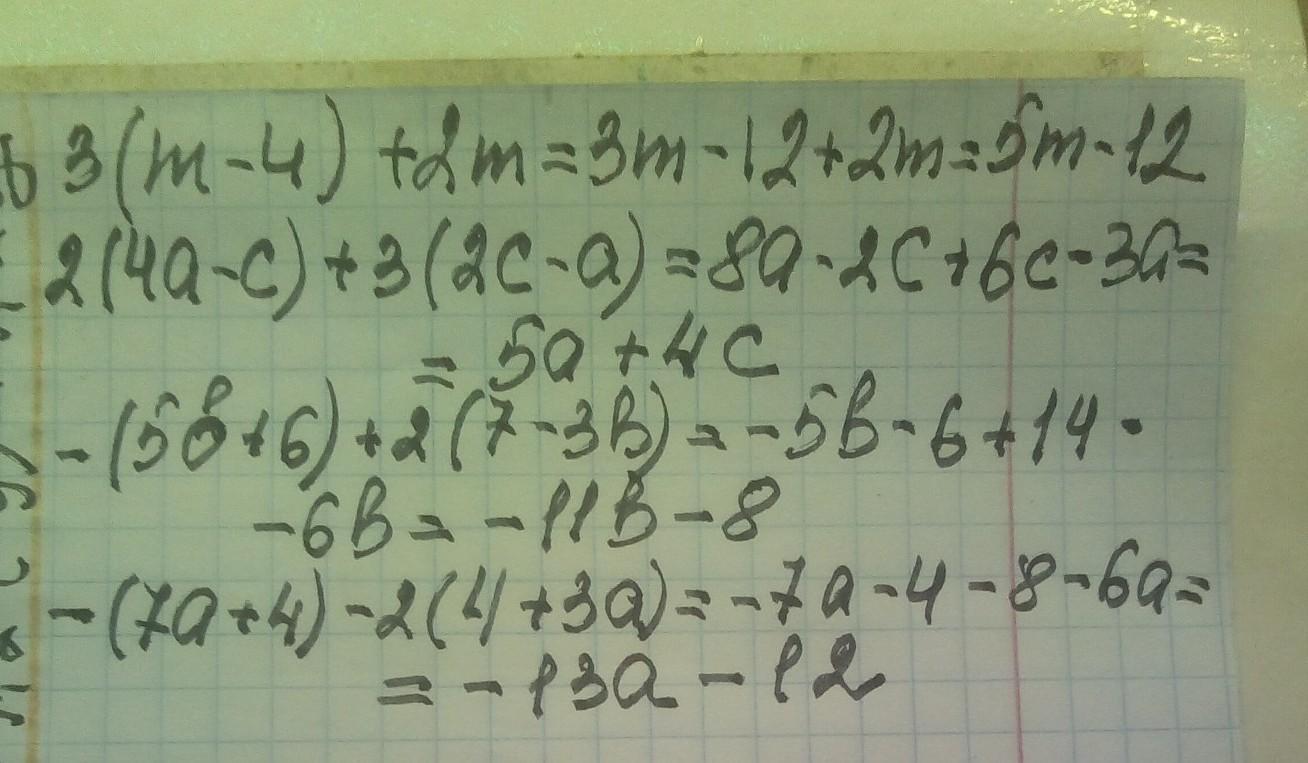 3(m-4) +2m=3m-12+2m=5m-12
2(4a-c)+3(2c-a)=8a-2c+6c-3a=
= 5a+4c
-(5в+6)+2(7-3в)=-5в-6+14-
-6в=-11в-8
-(7a+4)-2(4+3a)=-7a-4-8-6a=
=-13a-12